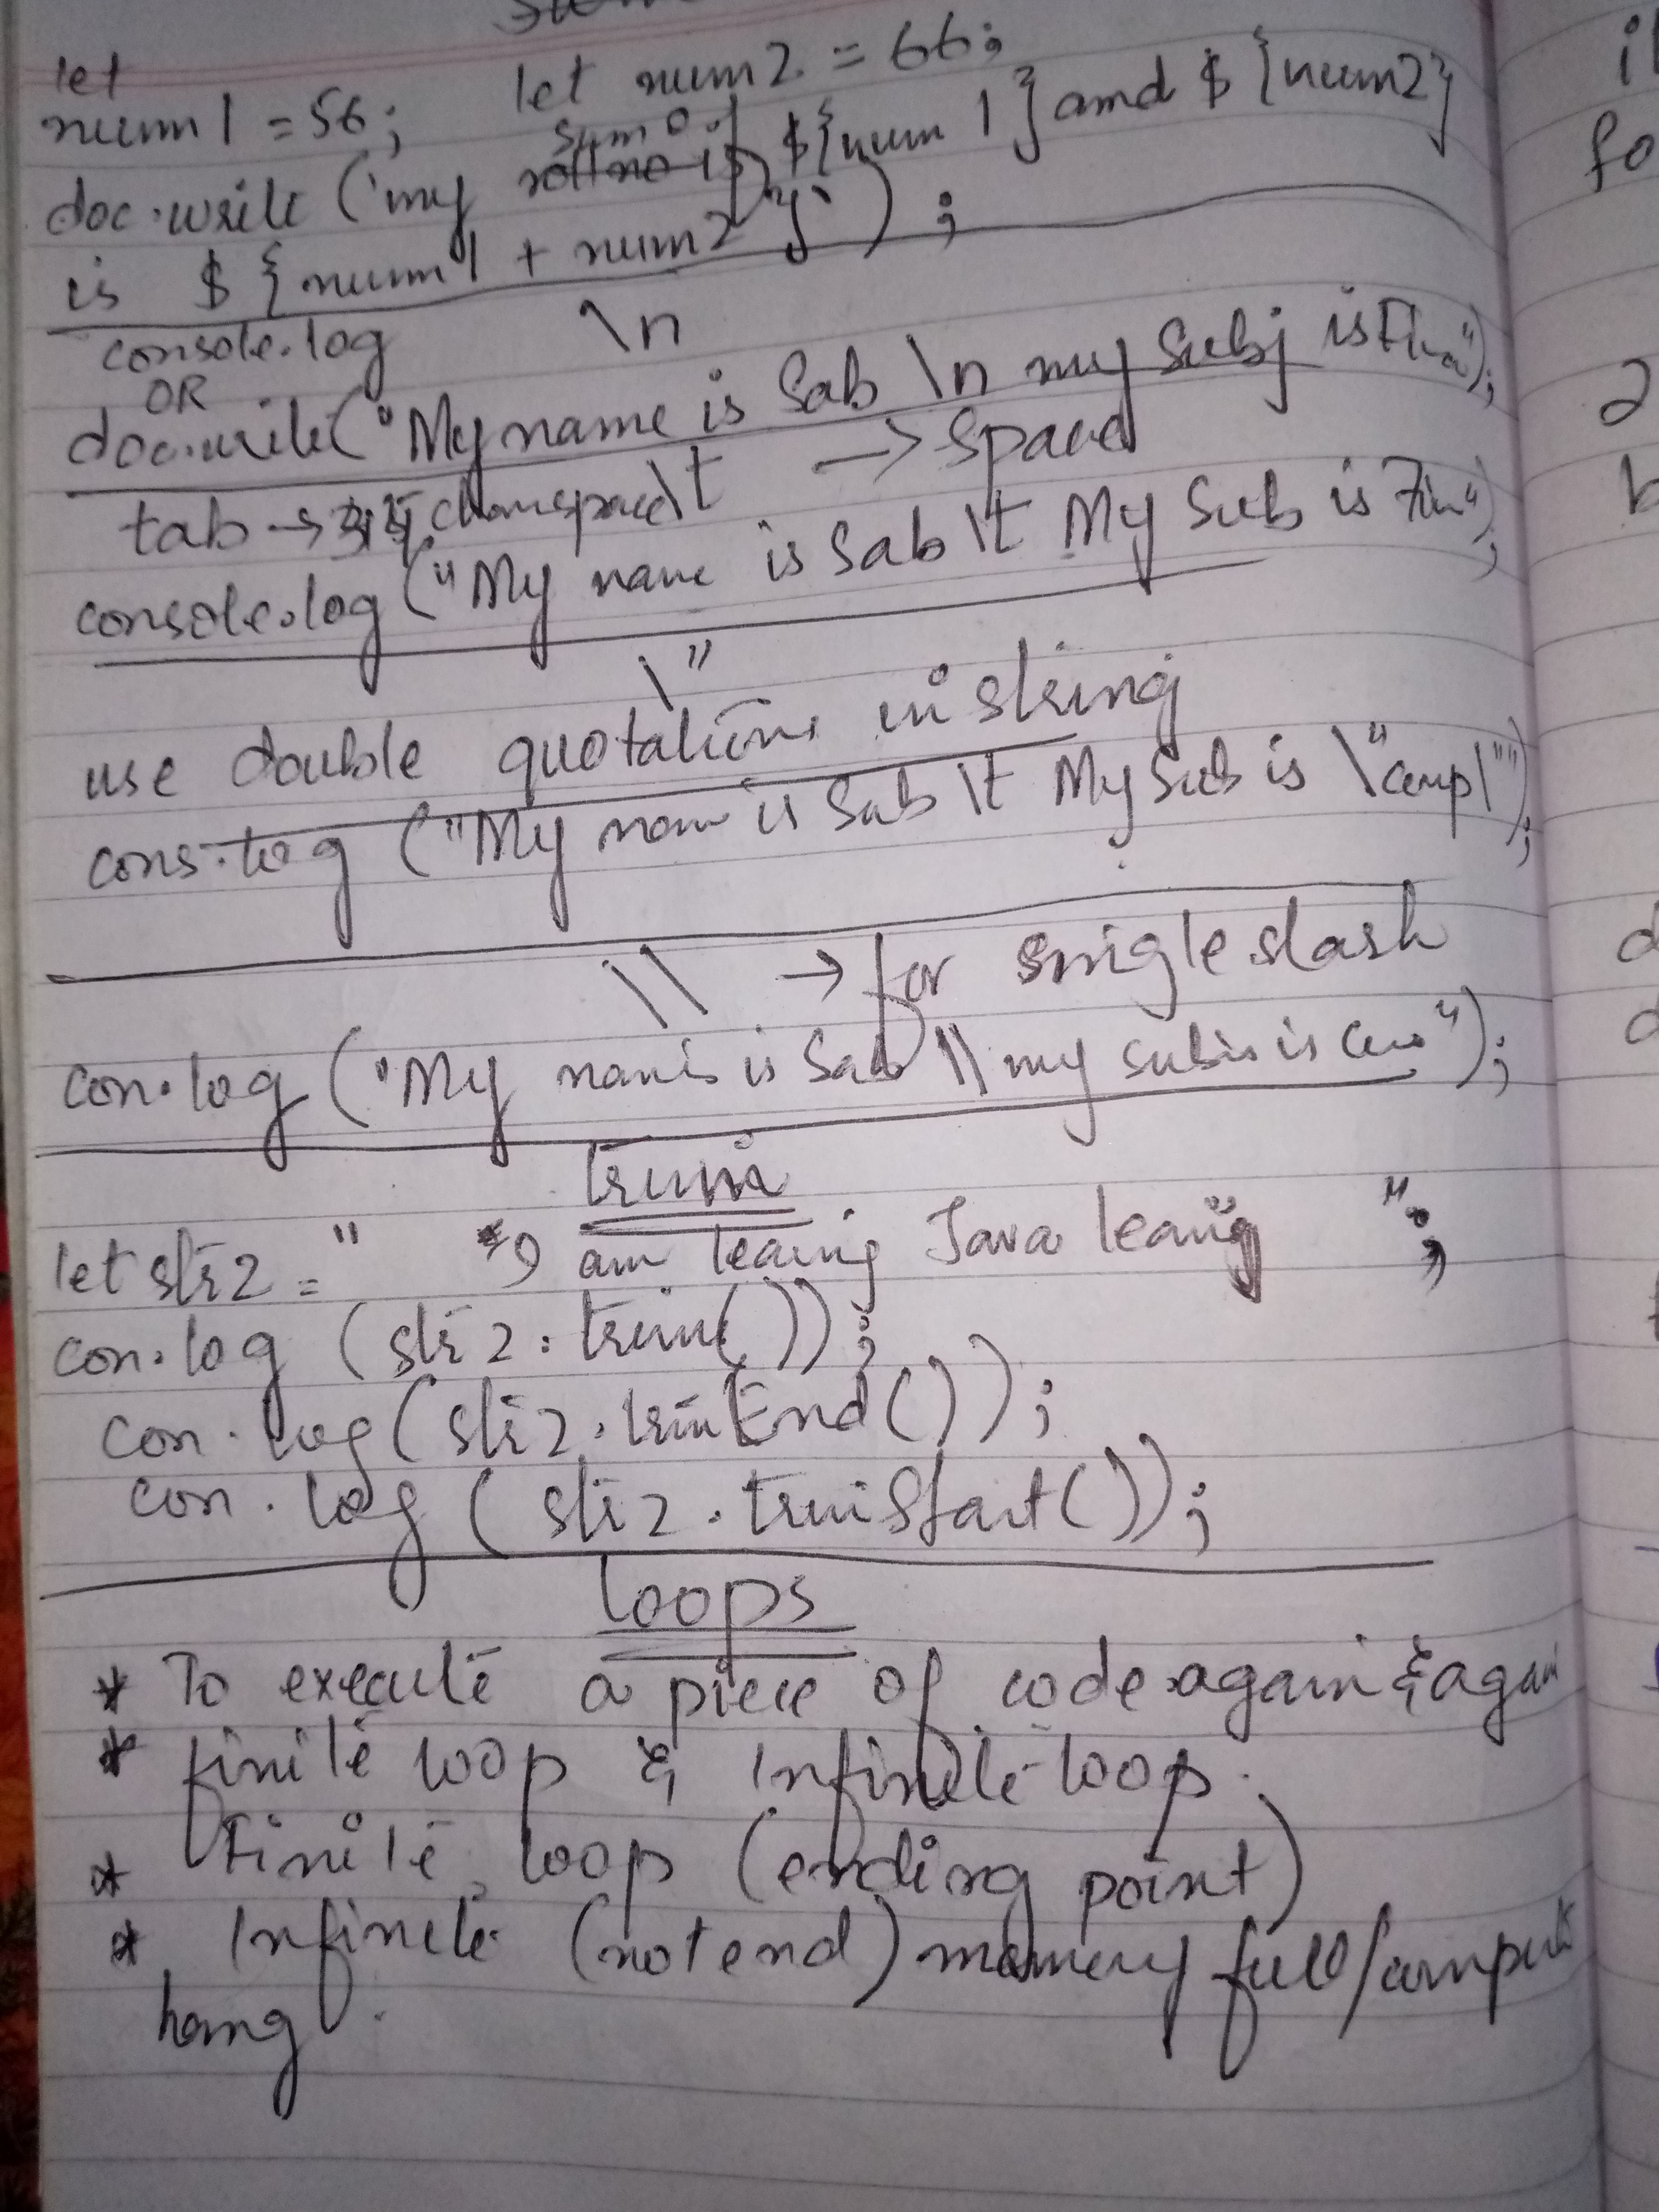 let
num1 = 56; let num2 = 66;
sum of
doc.write ('my roll no is ${num 1} and ${num2}
is ${num1 + num2}`);
console.log \n
OR
doc.write("My name is Sab \n my Subj is Fin");
tab → space \t → Spaced
console.log ("My name is Sab \t My Sub is Fin");
\"
use double quotations in string
cons.log ("My nam is Sab \t My Sub is \"comp\"");
\\ → for single slash
con.log ("My nam is is Sab \\ my sub is is");
trim
let str2 = " I am learing Java learig ";
con.log (str2.trim());
con.log (str2.trimEnd());
con.log (str2.trimStart());
loops
* To execute a piece of code again & again
* finite loop & Infinite loop.
* Finite loop (ending point)
* Infinite (not end) memory full/computer
hang.